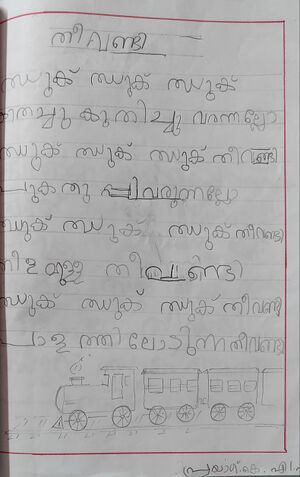 തീവണ്ടി
ഝുക് ഝുക് ഝുക്
കുതച്ചു കുതിച്ചു വരുന്നല്ലോ
ഝുക് ഝുക് ഝുക് തീവണ്ടി
പുക തു പ്പിവരുന്നല്ലോ
ഝുക് ഝുക് ഝുക് തീവണ്ടി
നീള മുള്ള തീവണ്ടി
ഝുക് ഝുക് ഝുക് തീവണ്ടി
പാള ത്തി ലോടുന്ന തീവണ്ടി
പ്രയാഗ്. കെ.